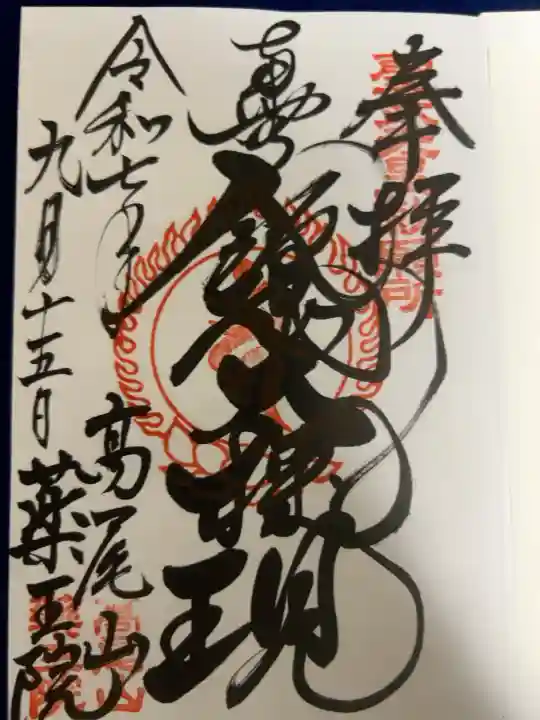 奉拝
飯縄大権現
高尾山
令和七年
九月十五日
薬王院